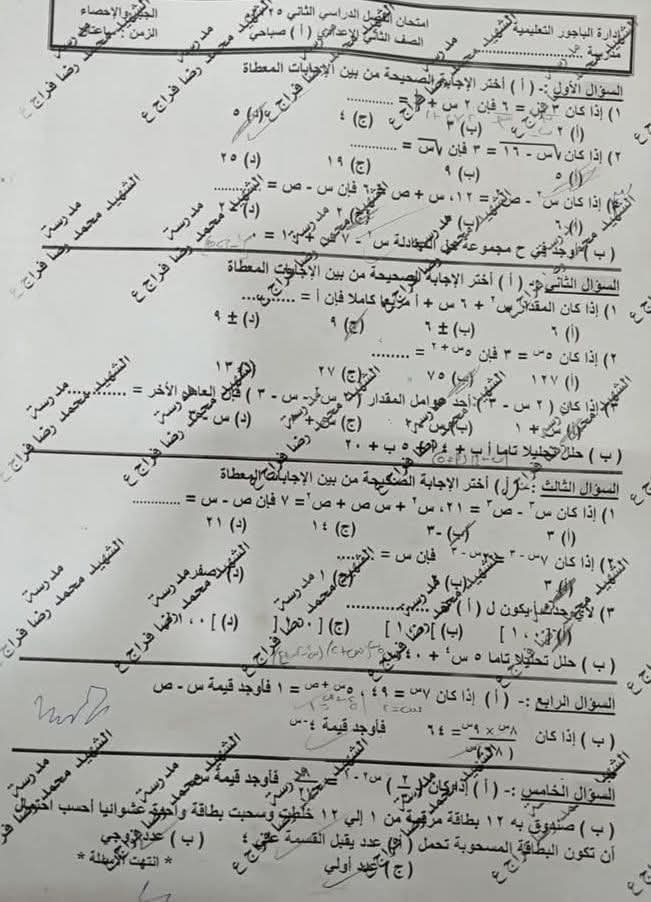 إدارة الباجور التعليمية
امتحان الفصل الدراسي الثاني
الجبر والإحصاء
مدرسة
الصف الثاني الإعدادي ( أ ) صباحي
الزمن : ساعتان
السؤال الأول :- ( أ ) أختر الإجابة الصحيحة من بين الإجابات المعطاة
١) إذا كان ٣ س = ٦ فإن ٢ س + ١ = ............
(أ) ٢ (ب) ٣ (ج) ٤ (د) ٥
٢) إذا كان √س - ١٦ = ٣ فإن √س = ............
(أ) ٥ (ب) ٩ (ج) ١٩ (د) ٢٥
إذا كان س٢ - ص٢ = ١٢، س + ص = ٦ فإن س - ص = ............
(أ) ٦
( ب ) أوجد في ح مجموعة حل المعادلة س٢ - ٧ س + ١٠ = ٠
السؤال الثاني :- ( أ ) أختر الإجابة الصحيحة من بين الإجابات المعطاة
١) إذا كان المقدار س٢ + ٦ س + أ مربعا كاملا فإن أ = ............
(أ) ٦ (ب) ± ٦ (ج) ٩ (د) ± ٩
٢) إذا كان ٥س = ٣ فإن ٥س + ٢ = ........
(أ) ١٢٧ (ب) ٧٥ (ج) ٢٧ (د) ١٣
٣) إذا كان ( ٢ س - ٣ ) أحد عوامل المقدار ( ٢ س٢ - س - ٣ ) فإن العامل الأخر = ............
(أ) س + ١
( ب ) حلل تحليلا تاما أ ب + ٤ أ + ٥ ب + ٢٠
السؤال الثالث :- ( أ ) أختر الإجابة الصحيحة من بين الإجابات المعطاة
١) إذا كان س٣ - ص٣ = ٢١، س٢ + س ص + ص٢ = ٧ فإن ص - س = ............
(أ) ٣ (ب) -٣ (ج) ١٤ (د) ٢١
٢) إذا كان ٧س - ٣ = ٢س - ٣ فإن س = ........
(أ) ٣ (ج) ١ (د) صفر
٣) لأي حدث أ يكون ل ( أ ) ............
( ب ) حلل تحليلا تاما ٥ س٤ + ٤٠ س
السؤال الرابع :- ( أ ) إذا كان ٧س = ٤٩ ، ٥س + ص = ١ فأوجد قيمة س - ص
( ب ) إذا كان ٨س × ٩س / (١٨)س = ٦٤ فأوجد قيمة ٤-س
السؤال الخامس :- ( أ ) إذا كان فأوجد قيمة س
( ب ) صندوق به ١٢ بطاقة مرقمة من ١ إلي ١٢ خلطت وسحبت بطاقة واحدة عشوانيا أحسب احتمال
أن تكون البطاقة المسحوبة تحمل ( أ ) عدد يقبل القسمة على ٤ ( ب ) عدد زوجي
( ج ) عدد أولي * انتهت الأسئلة *
مدرسة
الشهيد محمد رضا فراج ع